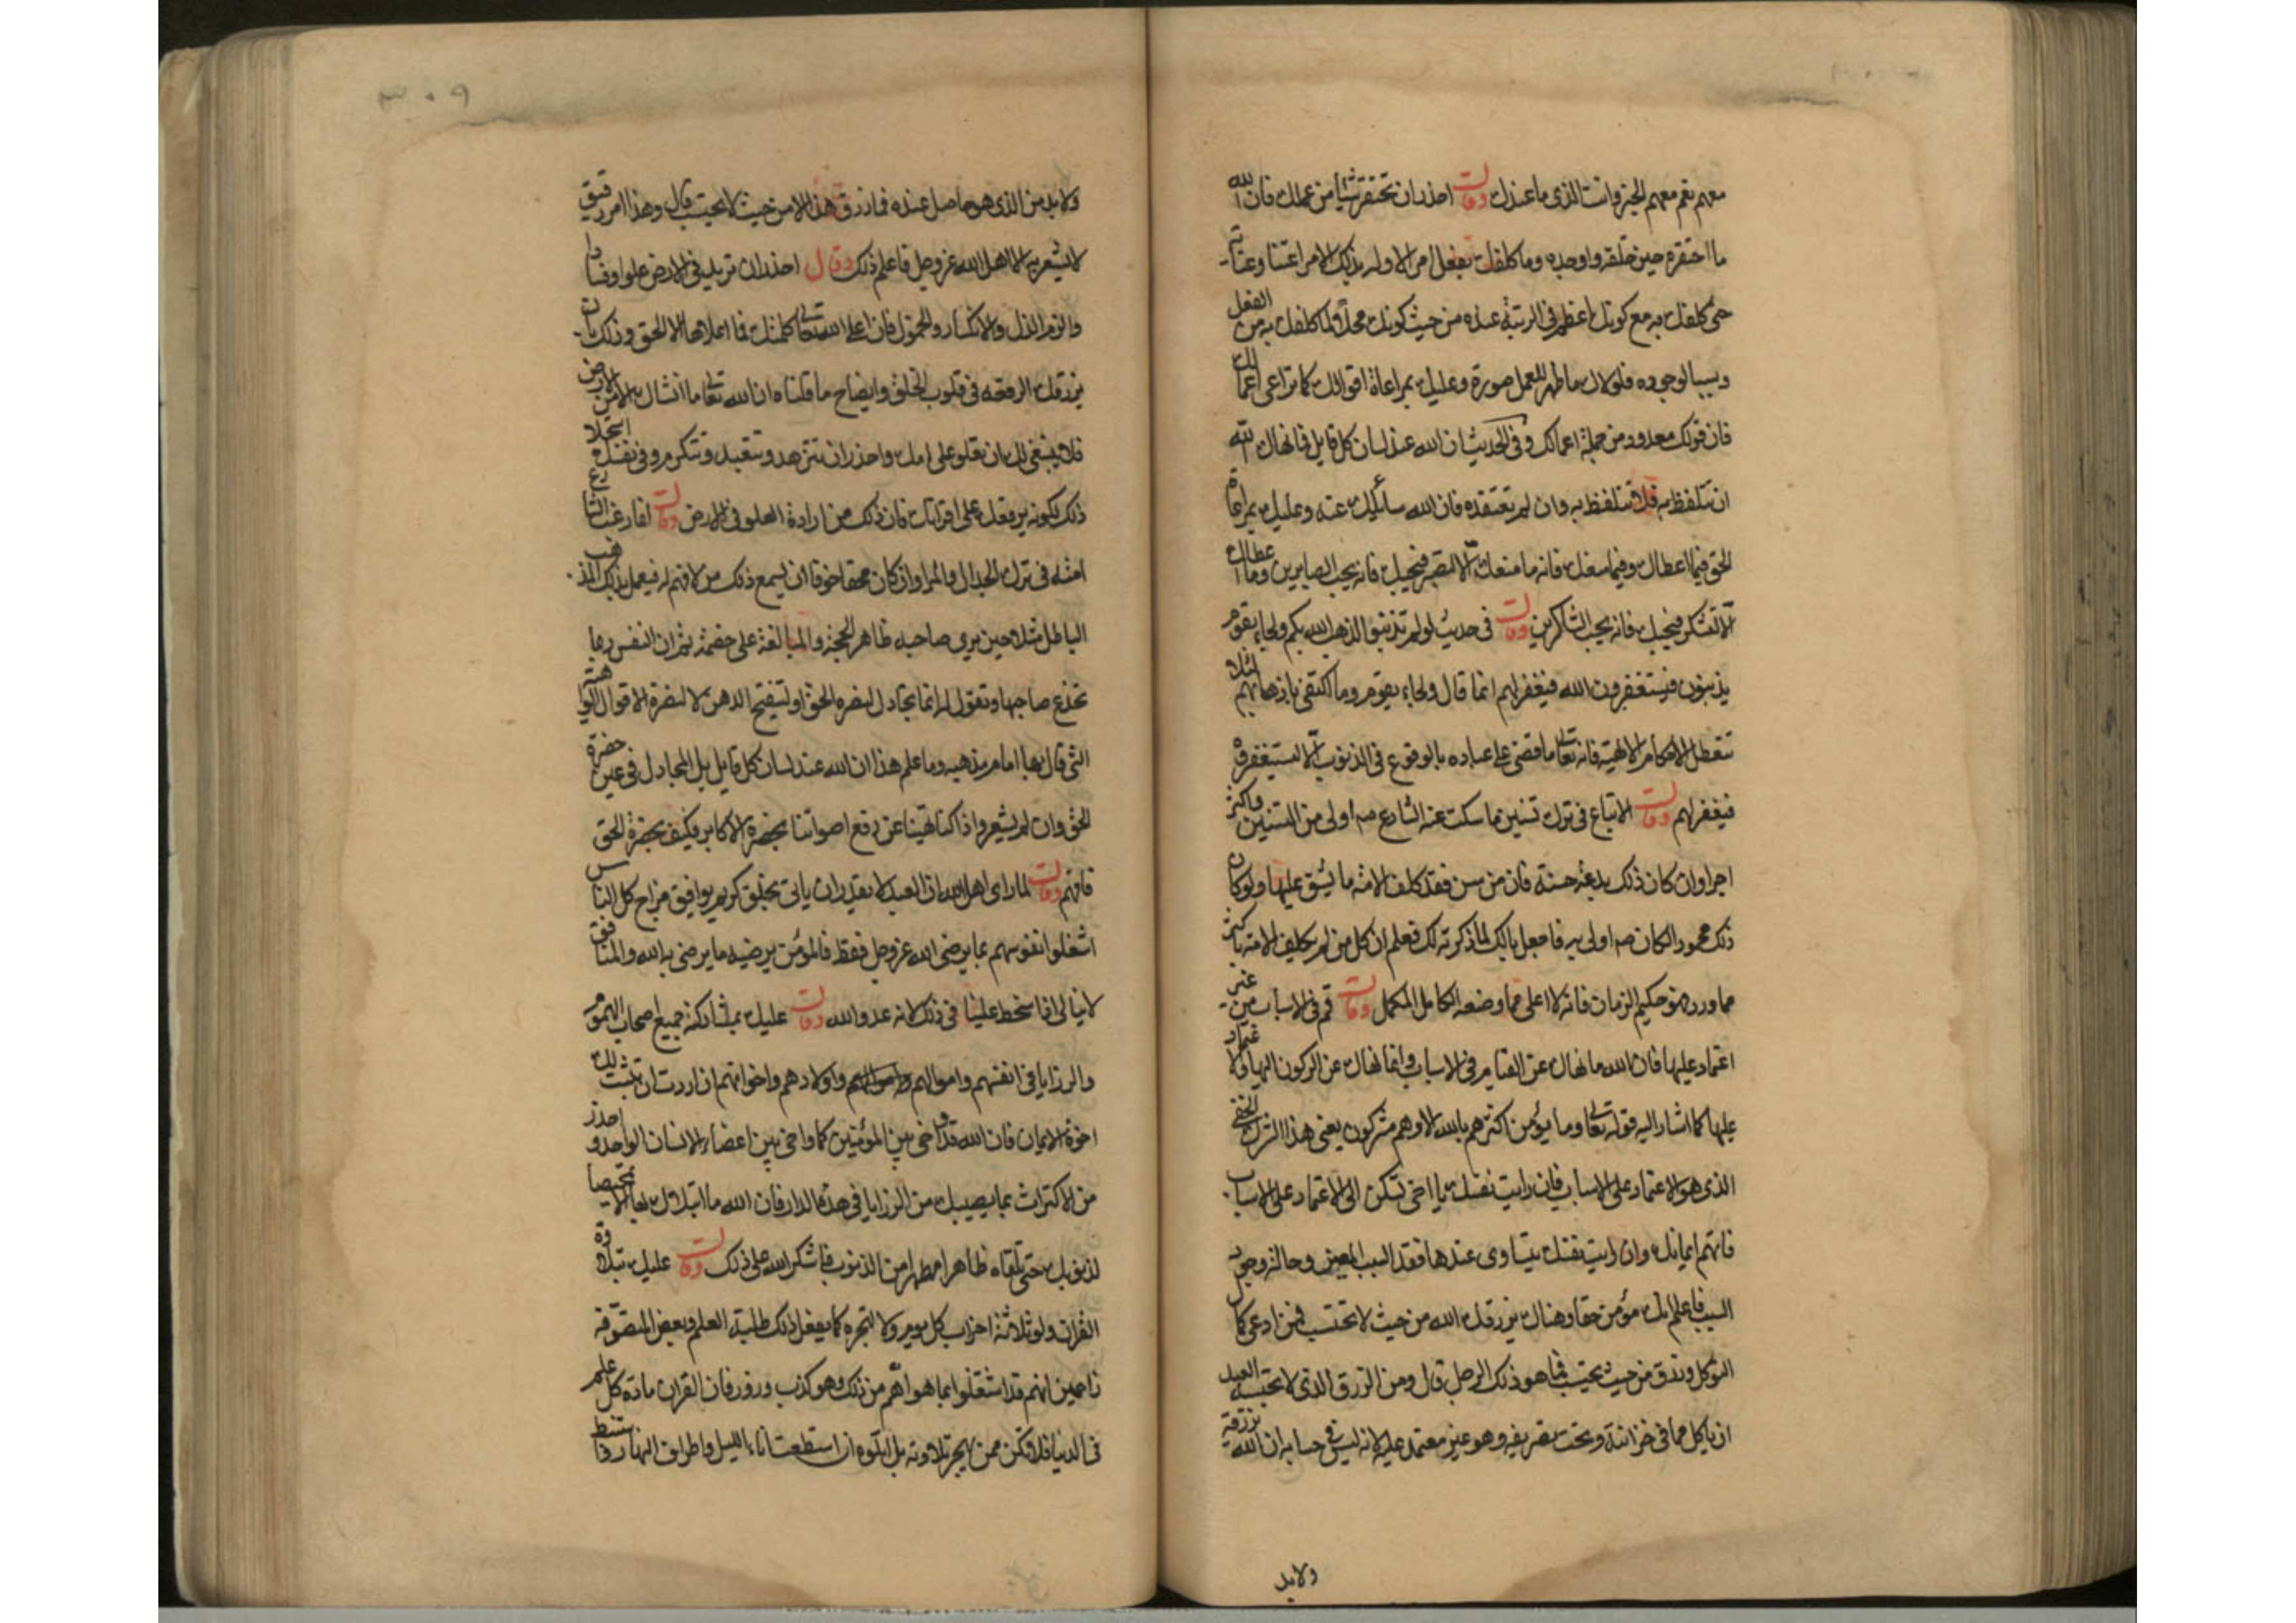 معهم نعم معهم الخير وانت الذى ما عندك وقال احذر ان تحتقر شيأ من عملك فان الله
ما احتقره حين خلقه واوجده وما كلفك بفعل امر الا وله بذلك الامر اعتنا وعناية
حتى كلفك به مع كونك اعظم فى الرتبة عنده من حيث كونك محلا لما كلفك به من الفعل
وسببا لوجوده فلولاك ما ظهر للعمل صورة وعليك بمراعاة اقوالك كما تراعى اعمالك
فان قولك معدود من جملة اعمالك وفى الحديث ان الله عند لسان كل قايل فانهاك الله
ان تتلفظ به فلا تتلفظ به وان لم تعتقده فان الله سائلك عنه وعليك بمراعاة
الحق فيما اعطاك وفيما منعك فانه ما منعك الا لتصبر فيحبك فانه يحب الصابرين وما اعطاك
الا لتشكر فيحبك فانه يحب الشاكرين وقال فى حديث لو لم تذنبوا لذهب الله بكم ولجاء بقوم
يذنبون فيستغفرون الله فيغفر لهم انما قال ولجاء بقوم وما اكتفى باذهابهم لئلا
تتعطل الاحكام الالهية فانه تعالى ما قضى على عباده بالوقوع فى الذنوب الا ليستغفروه
فيغفر لهم وقال الاتباع فى ترك تسنين ما سكت عنه الشارع صم اولى من التسنين واكثر
اجرا وان كان ذلك بدعة حسنة فان من سن فقد كلف الامة ما يشق عليها ولو كان
ذلك محمودا لكان صم اولى به فاجعل بالك لما ذكرته لك فعلم ان كل من لم يكلف الامة باكثر
مما ورد فهو حكيم الزمان فانه لا اعلى مما وضعه الكامل المكمل وقال قم فى الاسباب من غير
اعتماد عليها فان الله ما نهاك عن القيام فى الاسباب وانما نهاك عن الركون اليها والاعتماد
عليها كما اشار اليه قوله تعالى وما يؤمن اكثرهم بالله الا وهم مشركون يعنى هذا الشرك الخفى
الذى هو الاعتماد على الاسباب فان رايت نفسك يا اخى تسكن الى الاعتماد على الاسباب
فاتهم ايمانك وان رايت نفسك يتساوى عندها فقد السبب المعين وحالة وجود
السبب فاعلم انك مؤمن حقا وهناك يرزقك الله من حيث لا تحتسب فمن ادعى كمال
التوكل ورزق من حيث يحتسب فما هو ذلك الرجل قال ومن الرزق الذى لا يحتسبه العبد
ان ياكل مما فى خزانته وتحت تصريفه وهو غير معتمد عليه لانه ليس فى حسابه ان الله يرزقه
ولابد
٣٠٩
ولابد من الذى هو حاصل عنده فما رزق هذا الا من حيث لا يحتسب قال وهذا امر دقيق
لا يشعر به الا اهل الله عز وجل فاعلم ذلك وقال احذر ان تريد فى الارض علوا وفسادا
والزم الذل والانكسار والخمول فان اعلى الله تعالى كلمتك فما اعلاها الا الحق وذلك بان
يرزقك الرفعة فى قلوب الخلق وايضاح ما قلناه ان الله تعالى ما انشاك الا من الارض
فلا ينبغى لك ان تعلو على امك واحذر ان تتزهد وتتعبد وتتكرم وفى نفسك استجلاب
ذلك لكونه يرفعك على اقرانك فان ذلك من ارادة العلو فى الارض وقال
امته فى ترك الجدال والمراء وان كان محقا خوفا ان يسمع ذلك من لا فهم له فيعمل بذلك المذهب
الباطل مثلا حين يرى صاحبه ظاهر الحجة والمبالغة على خصمه ثم ان النفس ربما
تخدع صاحبها وتقول له انما تجادل لنصرة الحق او لتفتيح الذهن لا لنصرة الاقوال الواهية
التى قال بها امام مذهبه وما علم هذا ان الله عند لسان كل قايل بل المجادل فى عين حضرة
الحق وان لم يشعر واذا كنا نهينا عن رفع اصواتنا بحضرة الاكابر فكيف بحضرة الحق
فافهم وقال لما راى اهل الله ان العبد لا يقدر ان ياتى بخلق كريم يوافق مزاج كل الناس
اشغلوا نفوسهم بما يرضى الله عز وجل فقط فالمؤمن يرضيه ما يرضى به الله والمنافق
لا نبالى اذا سخط علينا فى ذلك لانه عدو الله وقال عليك بمشاركة جميع اصحاب الهموم
والرزايا فى انفسهم واموالهم واولادهم واخوانهم ان اردت ان تثبت لك
اخوة الايمان فان الله قد اخى بين المؤمنين كما واخى بين اعضاء الانسان الواحد واحذر
من الاكتراث بما يصيبك من الرزايا فى هذه الدار فان الله ما ابتلاك بها الا تمحيصا
لذنوبك حتى تلقاه طاهرا مطهرا من الذنوب فاشكر الله على ذلك وقال عليك بتلاوة
القران ولو ثلاثة احزاب كل يوم ولا تهجره كما يفعل ذلك طلبة العلم وبعض المتصوفة
زاعمين انهم قد اشتغلوا بما هو اهم من ذلك وهو كذب وزور فان القران مادة كل علم
فى الدنيا فلا تكن ممن يهجر تلاوته بل اتلوه ان استطعت اناء الليل واطراف النهار